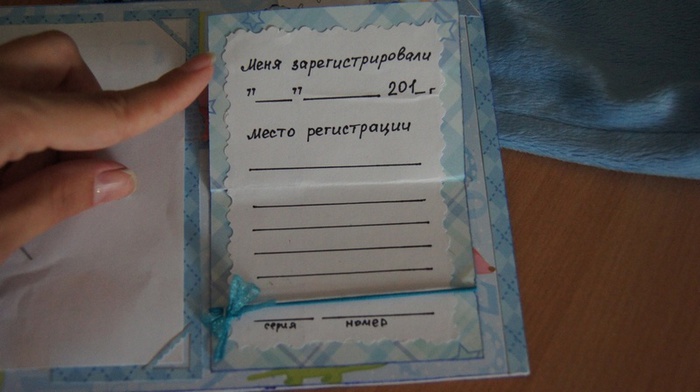 Меня зарегистрировали
"___"________ 201_г
Место регистрации
серия номер